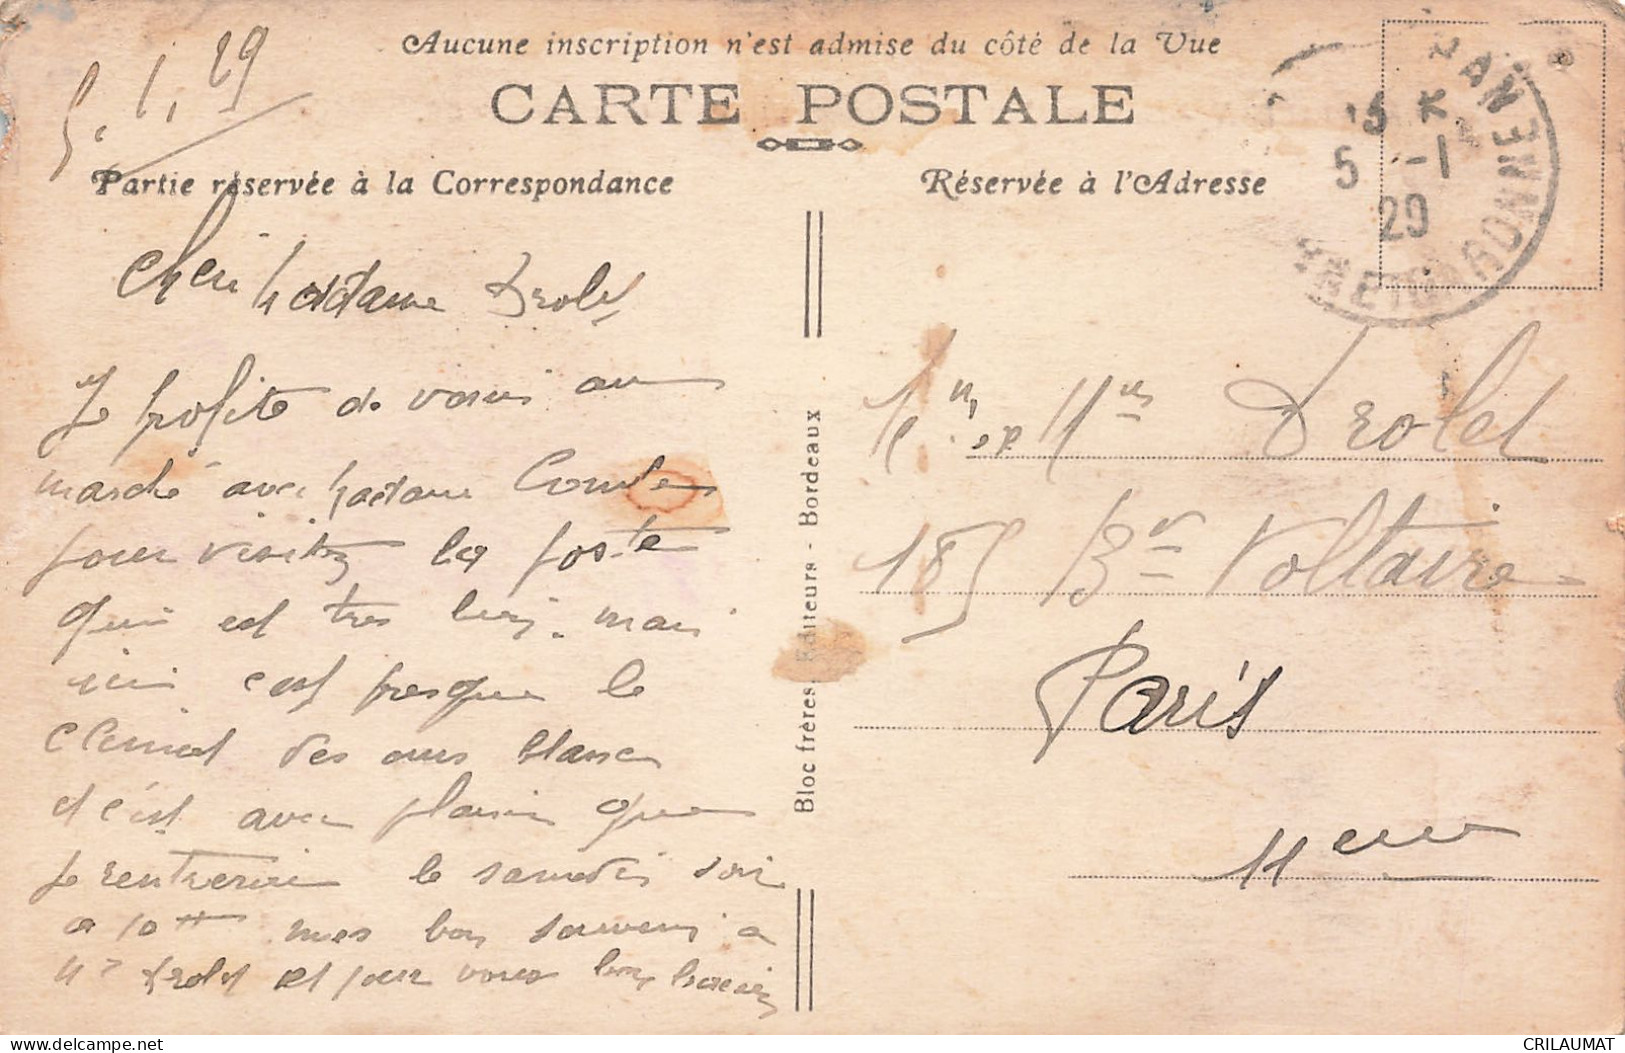 5.1.29
Aucune inscription n'est admise du côté de la Vue
CARTE POSTALE
Partie réservée à la Correspondance
Réservée à l'Adresse
5 -1
29
Chéri Madame Drolet
Je profite de venir au
marché avec Madame
pour visiter la poste
qui est tres mais
ici c'est presque le
climat des ours blancs
et c'est avec plaisir que
je rentrerai le samedis soir
a 10 H mes bon souvenir a
Mr Drolet et pour vous bon baisier
Mr et Mme Drolet
185 Bd Voltaire
Paris
11eme
Bloc frères, Editeurs - Bordeaux
CRILAUMAT